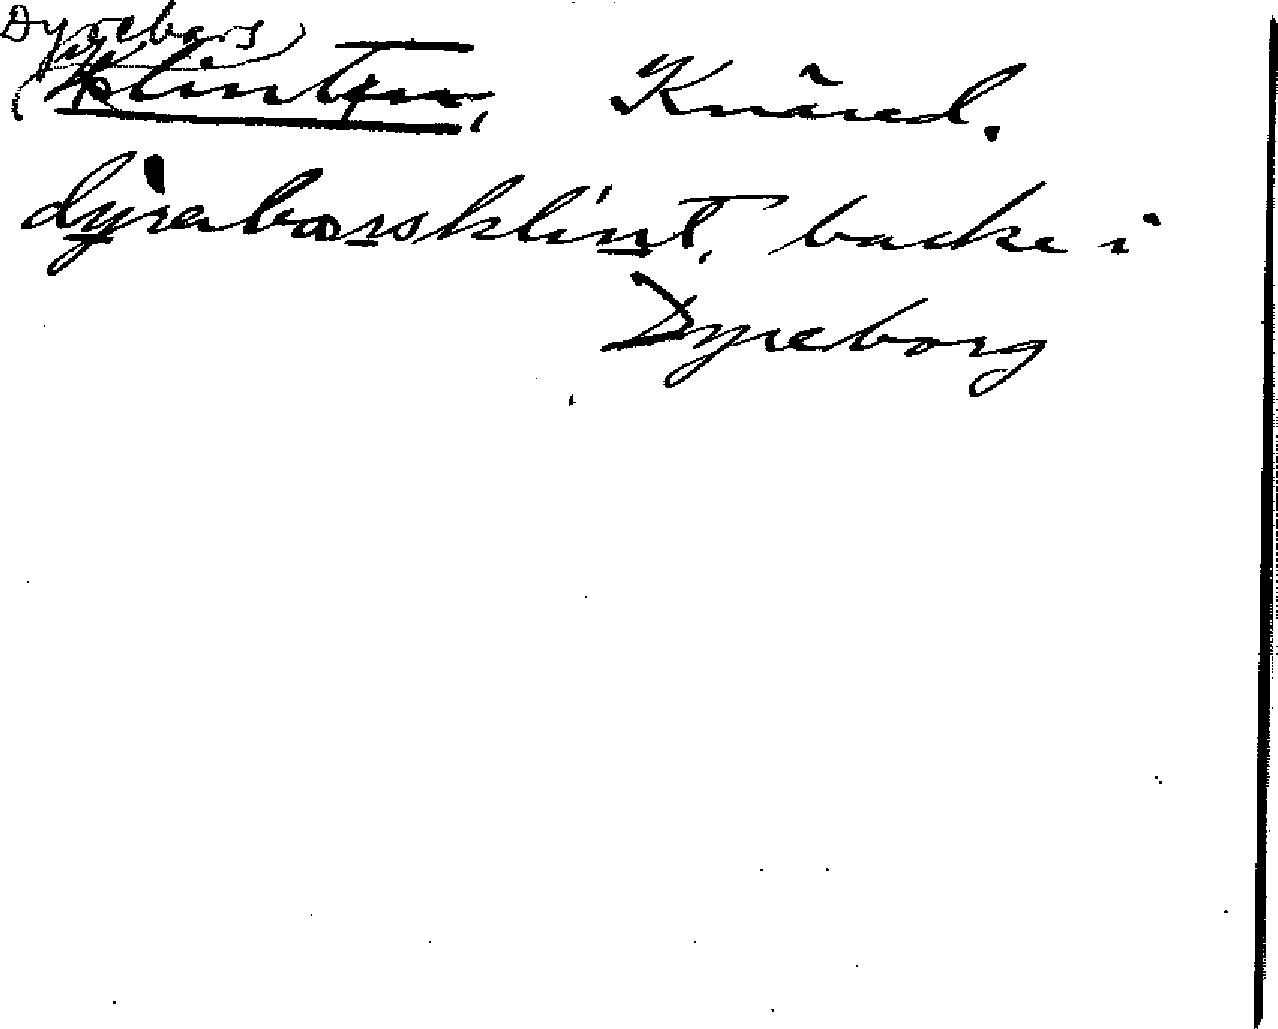 Dyrebors
Klinten, Knäred.
dyrabosrsklint, backe i
Dyreborg